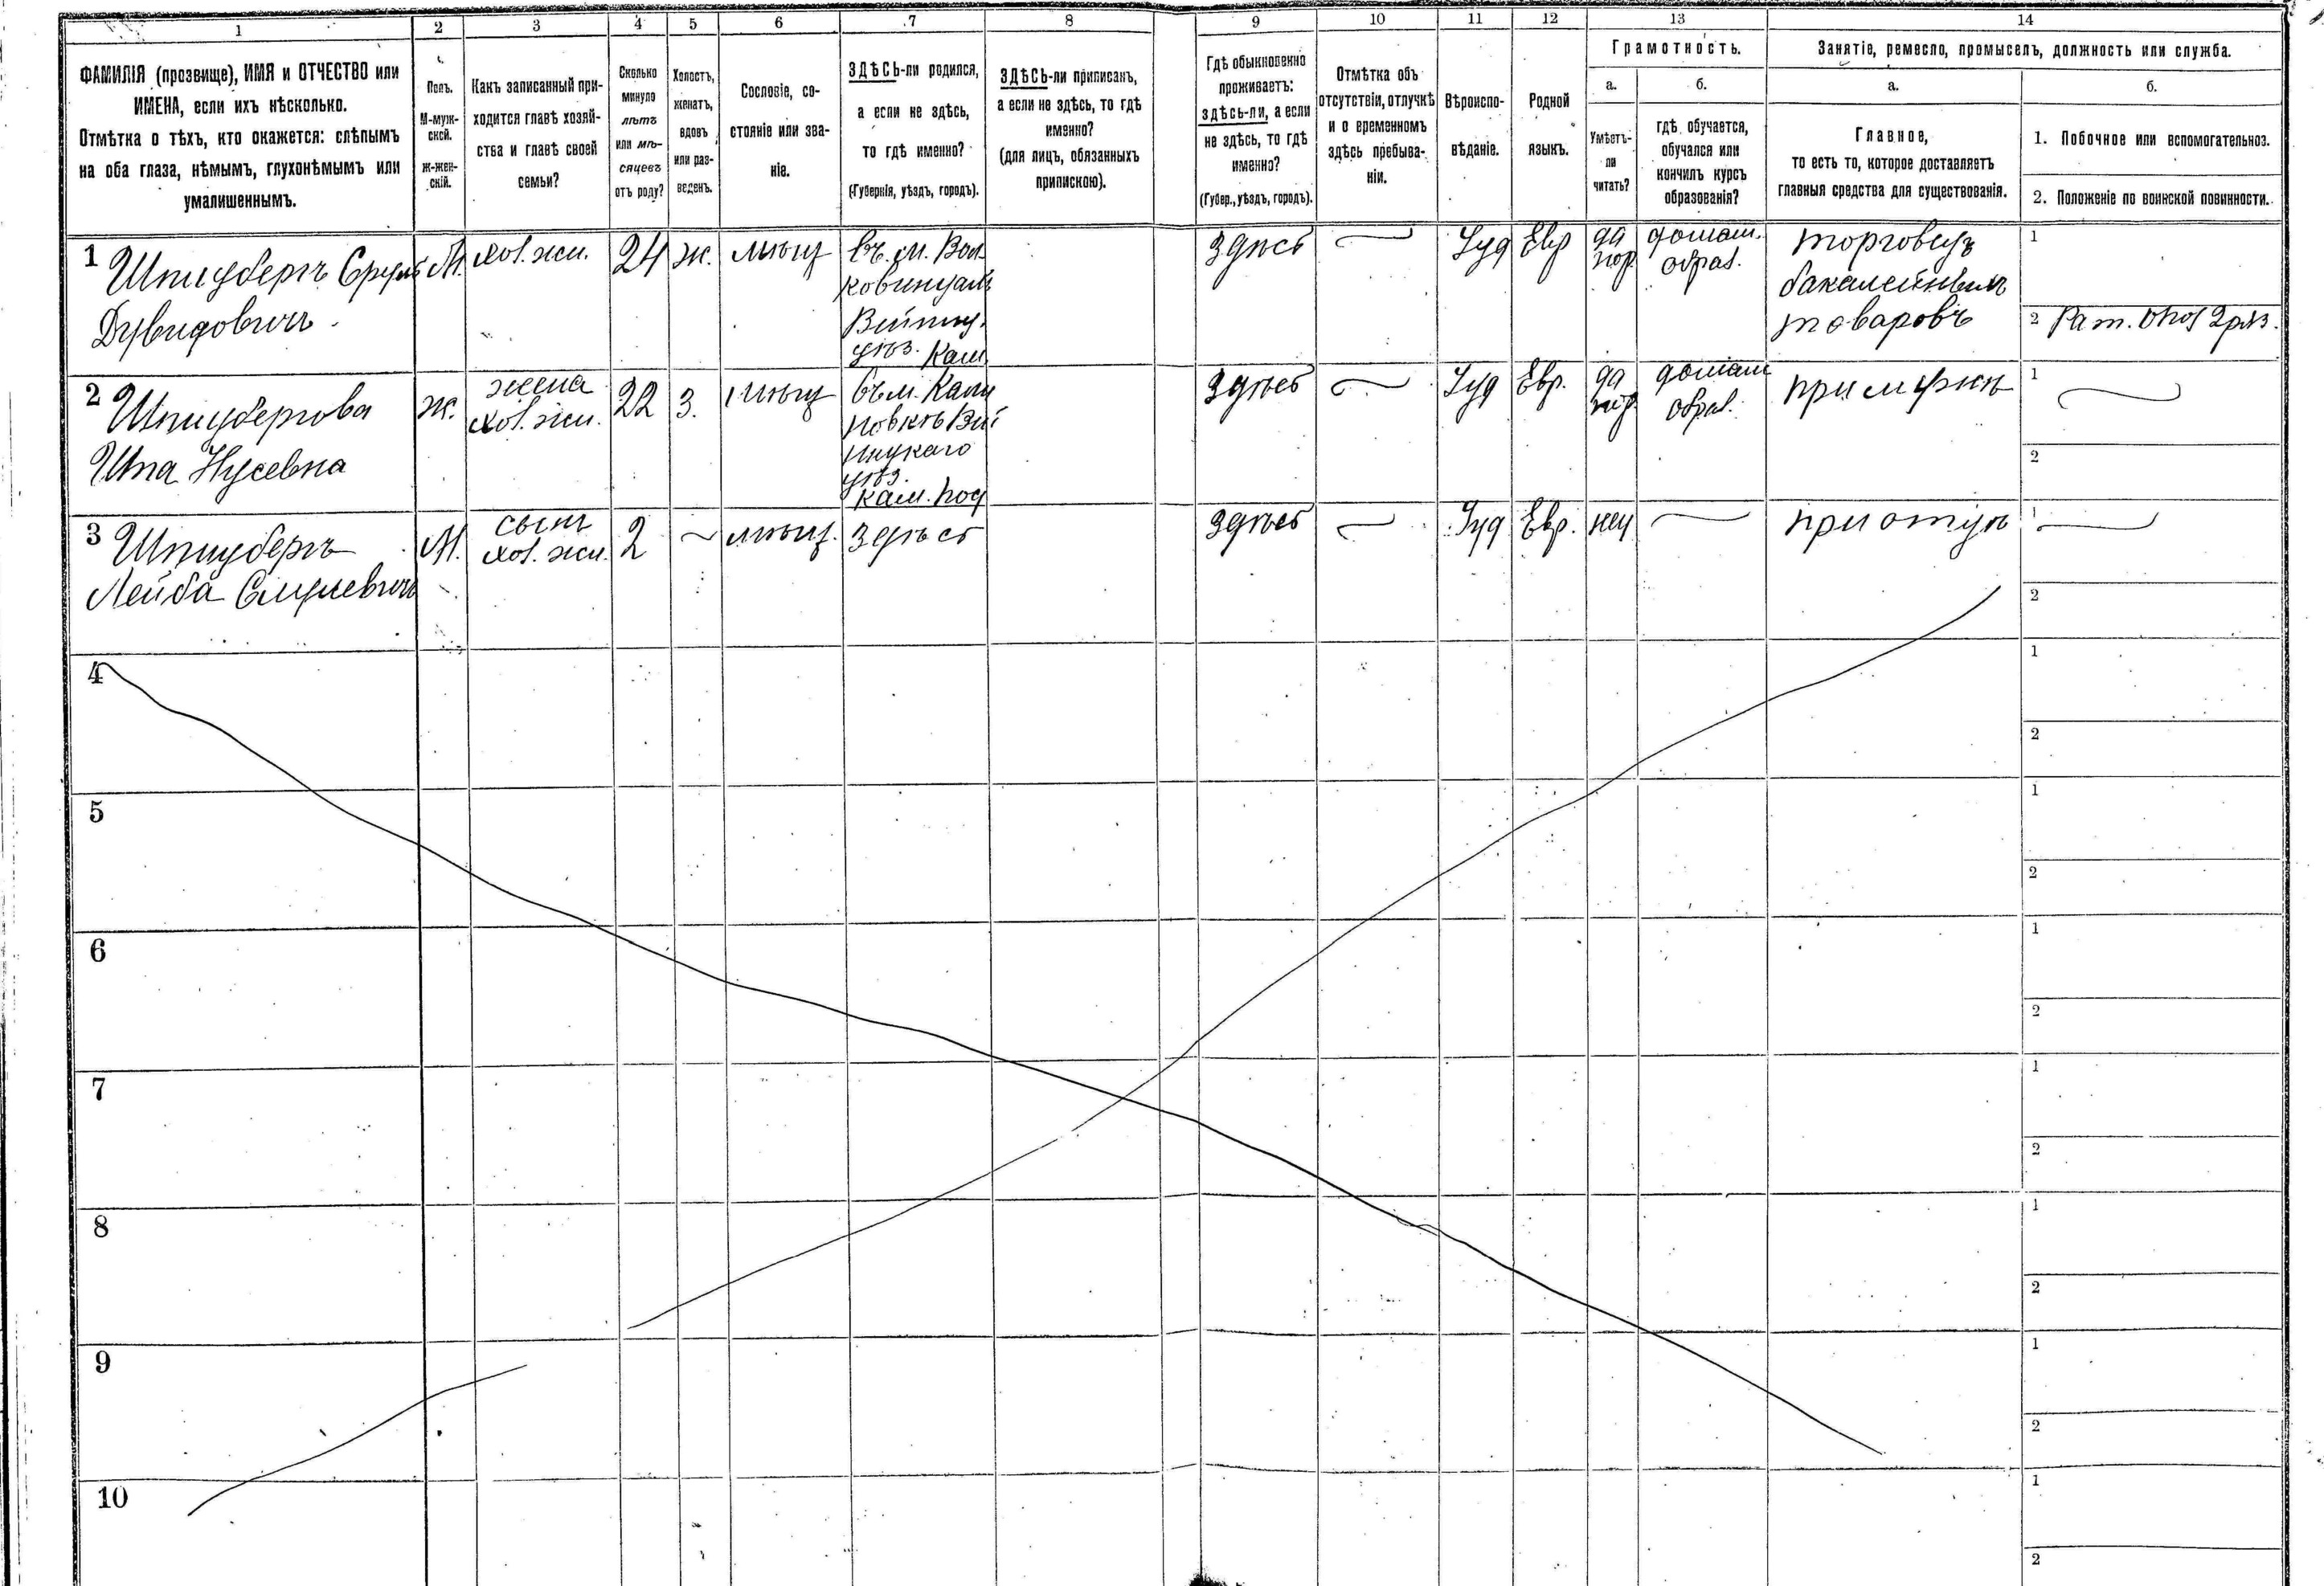 1 2 3 4 5 6 7 8 9 10 11 12 13 14
ФАМИЛІЯ (прозвище), ИМЯ и ОТЧЕСТВО или
ИМЕНА, если ихъ нѣсколько.
Отмѣтка о тѣхъ, кто окажется: слѣпымъ
на оба глаза, нѣмымъ, глухонѣмымъ или
умалишеннымъ.
Полъ.
М-муж-
ской.
ж-жен-
скій.
Какъ записанный при-
ходится главѣ хозяй-
ства и главѣ своей
семьи?
Сколько
минуло
лѣтъ
или мѣ-
сяцевъ
отъ роду?
Холостъ,
женатъ,
вдовъ
или раз-
веденъ.
Сословіе, со-
стояніе или зва-
ніе.
ЗДѢСЬ-ли родился,
а если не здѣсь,
то гдѣ именно?
(Губернія, уѣздъ, городъ).
ЗДѢСЬ-ли приписанъ,
а если не здѣсь, то гдѣ
именно?
(для лицъ, обязанныхъ
припискою).
Гдѣ обыкновенно
проживаетъ:
здѣсь-ли, а если
не здѣсь, то гдѣ
именно?
(Губер., уѣздъ, городъ).
Отмѣтка объ
отсутствіи, отлучкѣ
и о временномъ
здѣсь пребыва-
ніи.
Вѣроиспо-
вѣданіе.
Родной
языкъ.
Грамотность.
а.
Умѣетъ-
ли
читать?
б.
гдѣ обучается,
обучался или
кончилъ курсъ
образованія?
Занятіе, ремесло, промыселъ, должность или служба.
а.
Главное,
то есть то, которое доставляетъ
главныя средства для существованія.
б.
1. Побочное или вспомогательное.
2. Положеніе по воинской повинности.
1 Шпицбергъ Сруль
Дувидовичъ
М.
хоз. жи.
24
ж.
мѣщ
въ. м. Вол
ковинцахъ
Винниц.
уѣз. Кам.
здѣсь
Іуд
Евр
да
домаш.
образ.
торговецъ
бакалейныхъ
товаровъ
1
2 Рат.
2 Шпицбергова
Ита Нусевна
ж.
жена
хоз. жи.
22
З.
мѣщ
въ м. Кали
новкѣ Вин
ницкаго
уѣз.
Кам. Под
здѣсь
Іуд
Евр.
да
домаш
образ.
при мужѣ
1
2
3 Шпицбергъ
Лейба Срулевичъ
М.
сынъ
хоз. жи.
2
мѣщ.
здѣсь
здѣсь
Іуд
Евр.
нет
при отцѣ
1
2
4
1
2
5
1
2
6
1
2
7
1
2
8
1
2
9
1
2
10
1
2